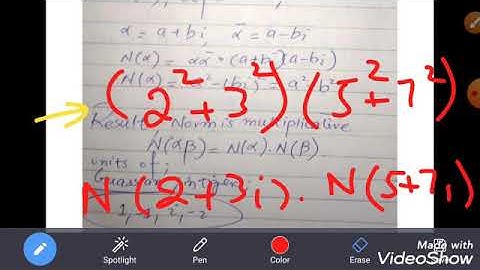 α = a + bi, ᾱ = a - bi
N(α) = αᾱ = (a+bi)(a-bi)
N(α) = a² - (bi)² = a² b²
(2² + 3²) (5² + 7²)
Result: Norm is multiplicative
N(αβ) = N(α) . N(β).
units of
Guassian integer
N (2+3i) . N (5+7i)
Spotlight
Pen
Color
Erase
Made with
VideoShow